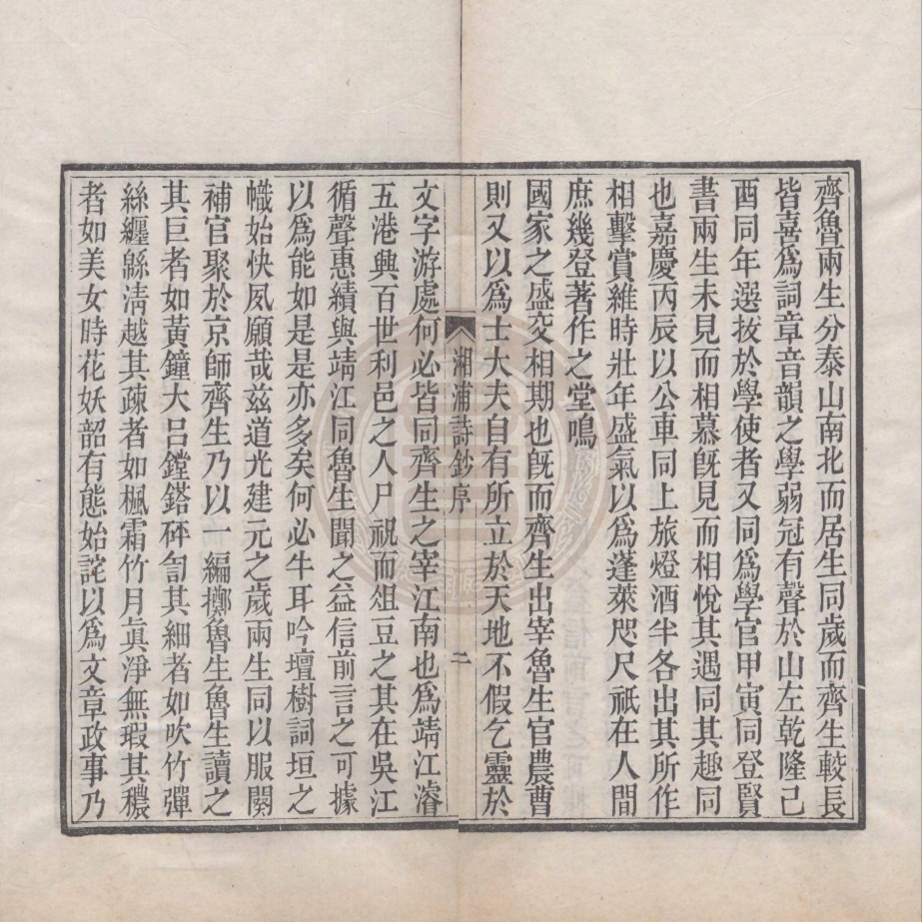 齊魯兩生分泰山南北而居生同歲而齊生較長
皆喜爲詞章音韻之學弱冠有聲於山左乾隆己
酉同年選拔於學使者又同爲學官甲寅同登賢
書兩生未見而相慕旣見而相悅其遇同其趣同
也嘉慶丙辰以公車同上旅燈酒半各出其所作
相擊賞維時壯年盛氣以爲蓬萊咫尺祇在人間
庶幾登著作之堂鳴
國家之盛交相期也旣而齊生出宰魯生官農曹
則又以爲士大夫自有所立於天地不假乞靈於
湘浦詩鈔序
二
文字游處何必皆同齊生之宰江南也爲靖江濬
五港興百世利邑之人尸祝而俎豆之其在吳江
循聲惠績與靖江同魯生聞之益信前言之可據
以爲能如是是亦多矣何必牛耳吟壇樹詞垣之
幟始快夙願哉兹道光建元之歲兩生同以服闋
補官聚於京師齊生乃以一編擲魯生魯生讀之
其巨者如黃鐘大呂鏜鎝砰訇其細者如吹竹彈
絲纏緜淸越其疎者如楓霜竹月眞淨無瑕其穠
者如美女時花妖韶有態始詫以爲文章政事乃